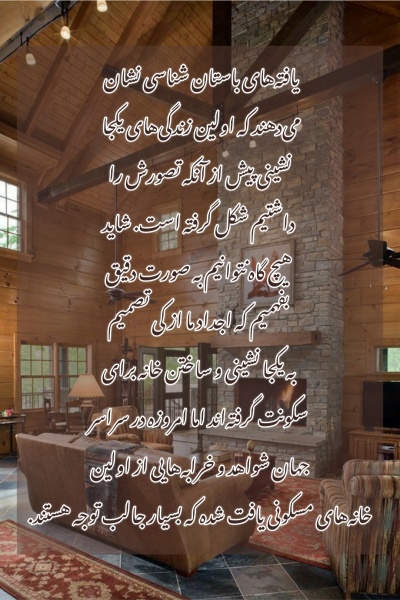 یافته‌های باستان شناسی نشان
می‌دهند که اولین زندگی‌های یکجا
نشینی پیش از آنکه تصورش را
داشتیم شکل گرفته است. شاید
هیچ گاه نتوانیم به صورت دقیق
بفهمیم که اجداد ما از کی تصمیم
به یکجا نشینی و ساختن خانه برای
سکونت گرفته‌اند اما امروزه در سراسر
جهان شواهد و خرابه‌هایی از اولین
خانه‌های مسکونی یافت شده که بسیار جالب توجه هستند.